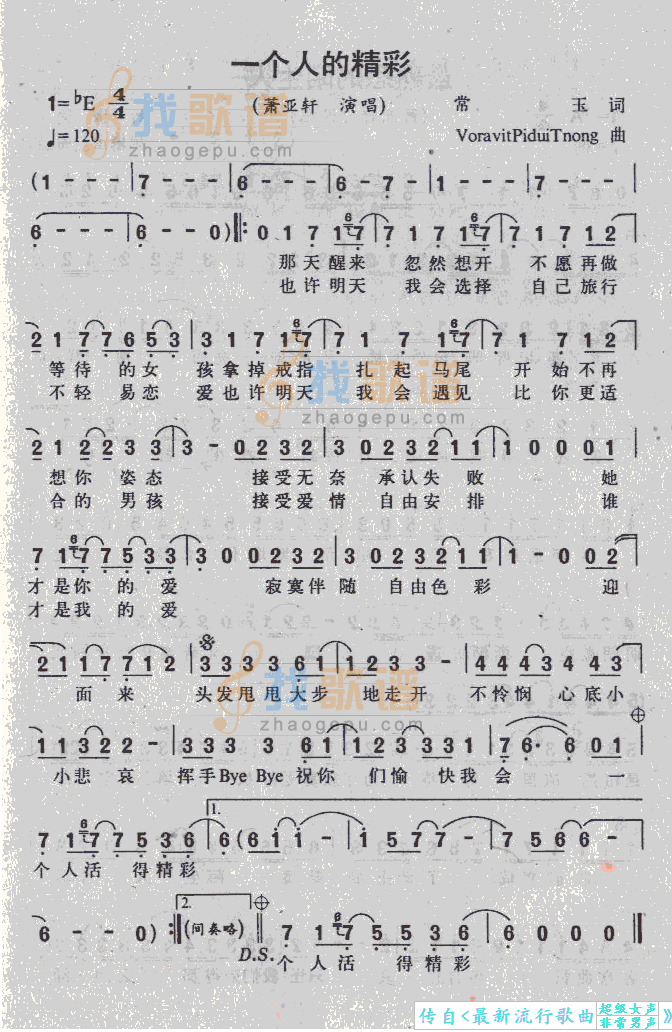 一个人的精彩
1=♭E 4/4 (萧亚轩 演唱) 常 玉 词
♩=120 VoravitPiduiTnong 曲
找歌谱
zhaogepu.com
(1 - - - | 7 - - - | 6 - - - | 6 - 7 - | 1 - - - | 7 - - - |
6 - - - | 6 - - 0) ‖: 0 1 7 1 7 | 7 1 7 1 7 | 7 1 7 1 2 |
那天醒来 忽然想开 不愿再做
也许明天 我会选择 自己旅行
2 1 7 7 6 5 3 | 3 1 7 1 7 | 7 1 7 1 7 | 7 1 7 1 2 |
等待的女 孩拿掉戒指 扎起马尾 开始不再
不轻易恋 爱也许明天 我会遇见 比你更适
找歌谱
zhaogepu.com
2 1 2 2 3 3 | 3 - 0 2 3 2 | 3 0 2 3 2 1 1 | 1 0 0 0 1 |
想你姿态 接受无奈 承认失败 她
合的男孩 接受爱情 自由安排 谁
7 1 7 7 5 3 3 | 3 0 0 2 3 2 | 3 0 2 3 2 1 1 | 1 - 0 0 2 |
才是你的爱 寂寞伴随 自由色彩 迎
才是我的爱
2 1 1 7 7 1 2 | 3 3 3 3 6 1 | 1 2 3 3 - | 4 4 4 3 4 4 3 |
面来 头发甩甩大步 地走开 不怜悯 心底小
找歌谱
zhaogepu.com
1 1 3 2 2 - | 3 3 3 3 6 1 | 1 2 3 3 3 1 | 7 6· 6 0 1 |
小悲哀 挥手Bye Bye祝你 们愉快我会 一
1.
7 1 7 7 5 3 6 | 6 (6 i i - | i 5 7 7 - | 7 5 6 6 - |
个人活 得精彩
2.
6 - - 0) :‖ (间奏略) ‖ 7 1 7 5 5 3 6 | 6 0 0 0 ‖
D.S. 个人活 得精彩
传自<最新流行歌曲
超级女声
非常男声